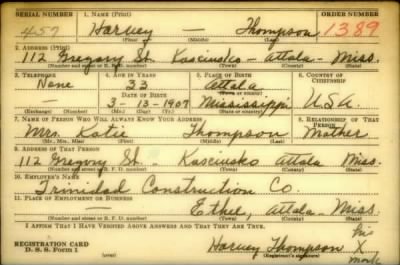 SERIAL NUMBER 1. NAME (Print) ORDER NUMBER
457 Harvey — Thompson 1389
(First) (Middle) (Last)
2. ADDRESS (Print)
112 Gregory St. Kasciusko - Attala - Miss.
(Number and street or R. F. D. number) (Town) (County) (State)
3. TELEPHONE 4. AGE IN YEARS 5. PLACE OF BIRTH 6. COUNTRY OF CITIZENSHIP
None 33 Attala
(Town or county)
DATE OF BIRTH
— 3-13-1907 Mississippi U.S.A.
(Exchange) (Number) (Mo.) (Day) (Yr.) (State or country)
7. NAME OF PERSON WHO WILL ALWAYS KNOW YOUR ADDRESS 8. RELATIONSHIP OF THAT PERSON
Mrs. Katie Thompson Mother
(Mr., Mrs., Miss) (First) (Middle) (Last)
9. ADDRESS OF THAT PERSON
112 Gregory St. Kasciusko Attala Miss.
(Number and street or R. F. D. number) (Town) (County) (State)
10. EMPLOYER'S NAME
Trinidad Construction Co.
11. PLACE OF EMPLOYMENT OR BUSINESS
Ethel, Attala - Miss.
(Number and street or R. F. D. number) (Town) (County) (State)
I AFFIRM THAT I HAVE VERIFIED ABOVE ANSWERS AND THAT THEY ARE TRUE.
REGISTRATION CARD
D. S. S. Form 1
Harvey Thompson his X mark
(Registrant's signature)